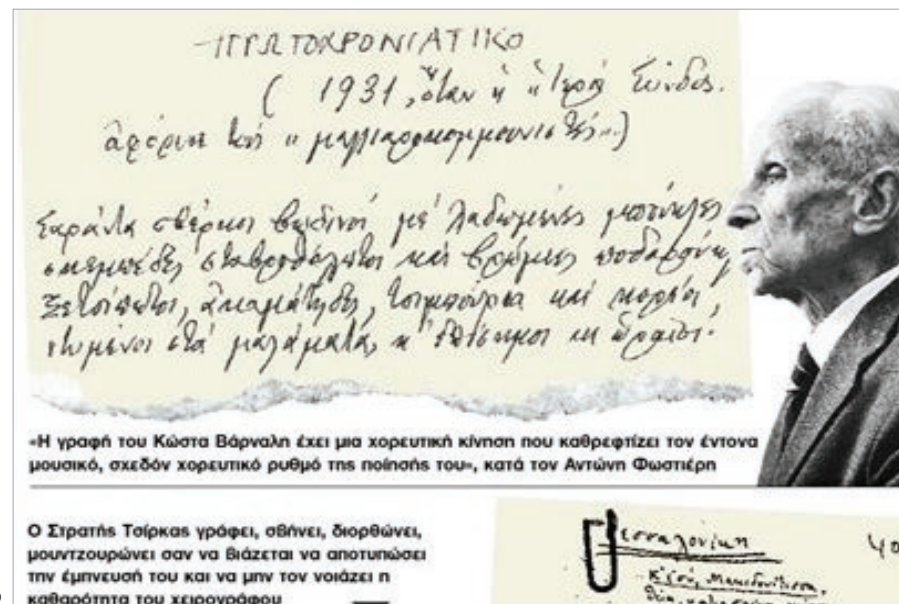 ΠΡΩΤΟΧΡΟΝΙΑΤΙΚΟ
( 1931, ὅταν ἡ "Ἱερά Σύνοδος.
ἀφόρισε τούς "μαλλιαροκομμουνιστές".)
Σαράντα σβέρκοι βωδινοί μέ λαδωμένες μπούκλες
σκεμπέδες, σταβροθόλωτοι καί βρώμιες ποδαρούκλες
ξετσίπωτοι, ἀκαμάτηδες, τσιμπούρια καί κορέοι,
ντυμένοι στά μαλάματα, κ' ἐπίσημοι κι ὡραῖοι.
«Η γραφή του Κώστα Βάρναλη έχει μια χορευτική κίνηση που καθρεφτίζει τον έντονα
μουσικό, σχεδόν χορευτικό ρυθμό της ποίησής του», κατά τον Αντώνη Φωστιέρη
Ο Στρατής Τσίρκας γράφει, σβήνει, διορθώνει,
μουντζουρώνει σαν να βιάζεται να αποτυπώσει
την έμπνευσή του και να μην τον νοιάζει η
καθαρότητα του χειρογράφου
Θεσσαλονίκη
Κ' ἐσύ, Μακεδόνισσα,